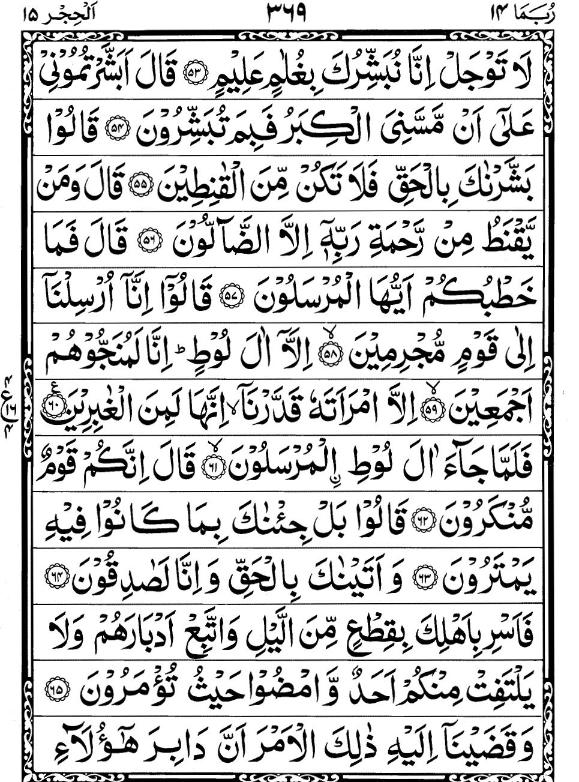 رُبَمَا ١٤ ٣٦٩ اَلْحِجْر ١٥
لَا تَوْجَلْ اِنَّا نُبَشِّرُكَ بِغُلٰمٍ عَلِيْمٍ ﴿٥٣﴾ قَالَ اَبَشَّرْتُمُوْنِيْ
عَلٰٓى اَنْ مَّسَّنِيَ الْكِبَرُ فَبِمَ تُبَشِّرُوْنَ ﴿٥٤﴾ قَالُوْا
بَشَّرْنٰكَ بِالْحَقِّ فَلَا تَكُنْ مِّنَ الْقٰنِطِيْنَ ﴿٥٥﴾ قَالَ وَمَنْ
يَّقْنَطُ مِنْ رَّحْمَةِ رَبِّهٖٓ اِلَّا الضَّآلُّوْنَ ﴿٥٦﴾ قَالَ فَمَا
خَطْبُكُمْ اَيُّهَا الْمُرْسَلُوْنَ ﴿٥٧﴾ قَالُوْٓا اِنَّآ اُرْسِلْنَآ
اِلٰى قَوْمٍ مُّجْرِمِيْنَ ﴿٥٨﴾ۙ اِلَّآ اٰلَ لُوْطٍ ؕ اِنَّا لَمُنَجُّوْهُمْ
اَجْمَعِيْنَ ﴿٥٩﴾ۙ اِلَّا امْرَاَتَهٗ قَدَّرْنَآ ۙ اِنَّهَا لَمِنَ الْغٰبِرِيْنَ ﴿٦٠﴾ ع ٤ ١٦ ٤
فَلَمَّا جَآءَ اٰلَ لُوْطِ ࣙالْمُرْسَلُوْنَ ﴿٦١﴾ۙ قَالَ اِنَّكُمْ قَوْمٌ
مُّنْكَرُوْنَ ﴿٦٢﴾ قَالُوْا بَلْ جِئْنٰكَ بِمَا كَانُوْا فِيْهِ
يَمْتَرُوْنَ ﴿٦٣﴾ وَاَتَيْنٰكَ بِالْحَقِّ وَاِنَّا لَصٰدِقُوْنَ ﴿٦٤﴾
فَاَسْرِ بِاَهْلِكَ بِقِطْعٍ مِّنَ الَّيْلِ وَاتَّبِعْ اَدْبَارَهُمْ وَلَا
يَلْتَفِتْ مِنْكُمْ اَحَدٌ وَّامْضُوْا حَيْثُ تُؤْمَرُوْنَ ﴿٦٥﴾
وَقَضَيْنَآ اِلَيْهِ ذٰلِكَ الْاَمْرَ اَنَّ دَابِرَ هٰٓؤُلَآءِ